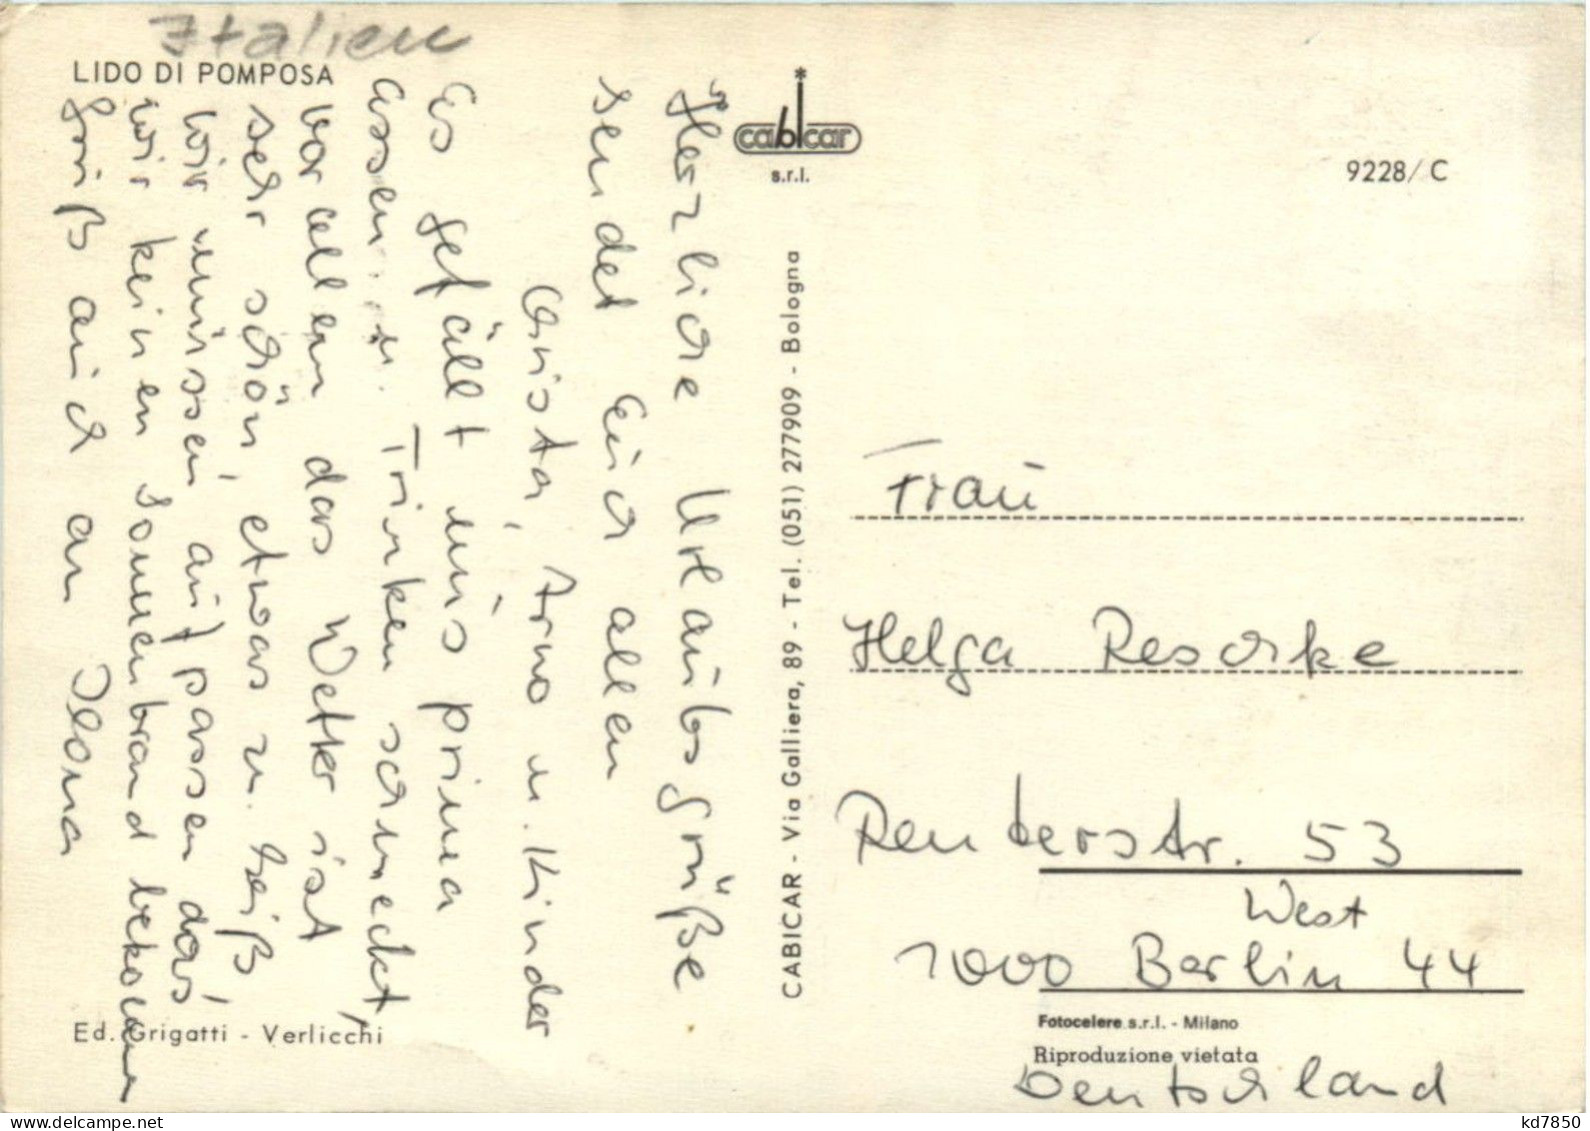 Italien
LIDO DI POMPOSA
Herzliche Urlaubsgrüße
sendet Euch allen
Christa, Arno u. Kinder
Es gefällt uns prima
Essen u. Trinken schmeckt,
vor allem das Wetter ist
sehr schön, etwas zu heiß
wir müssen aufpassen das
wir keinen Sonnenbrand bekommen
Gruß auch an Ilona
Ed. Grigatti - Verlicchi
cabicar
s.r.l.
CABICAR - Via Galliera, 89 - Tel. (051) 277909 - Bologna
9228/C
Frau
Helga Reschke
Reuterstr. 53
West
1000 Berlin 44
Fotocelere s.r.l. - Milano
Riproduzione vietata
Deutschland
www.delcampe.net
kd7850